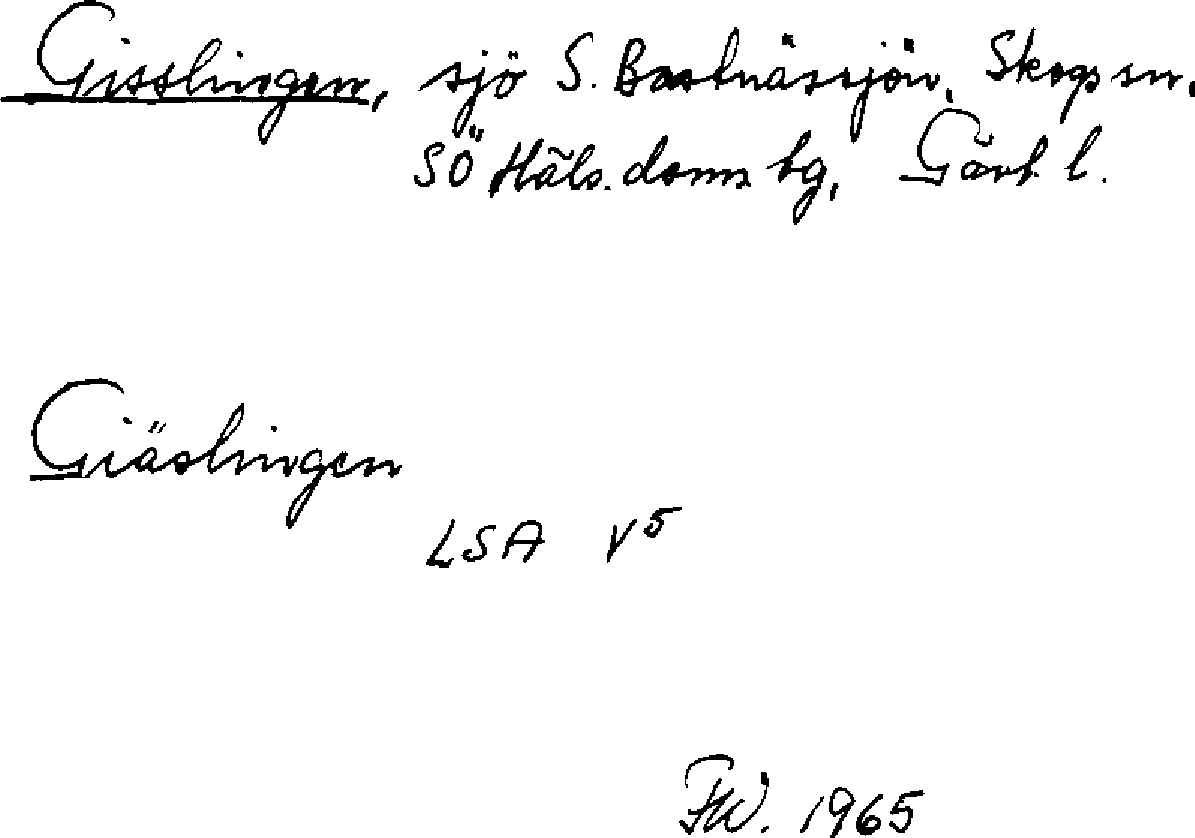 Gisslingen, sjö S. Bastnässjön, Skogs sn.
SÖ Häls. doms bg, Gävl. l.
Giäslingen
LSA V5
FW. 1965